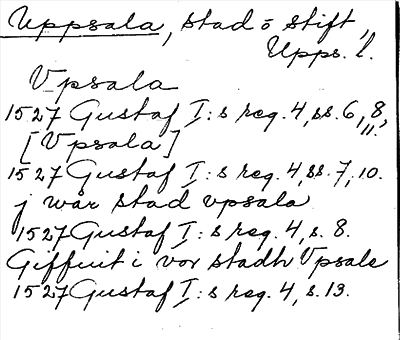 Uppsala, stad o stift,
Upps. l.
Vpsala
1527 Gustaf I:s reg. 4, ss. 6, 8,
[Vpsala] 11.
1527 Gustaf I:s reg. 4, ss. 7, 10.
j wår stad vpsala
1527 Gustaf I:s reg. 4, s. 8.
Giffuit i vor stadh Vpsale
1527 Gustaf I:s reg. 4, s. 13.